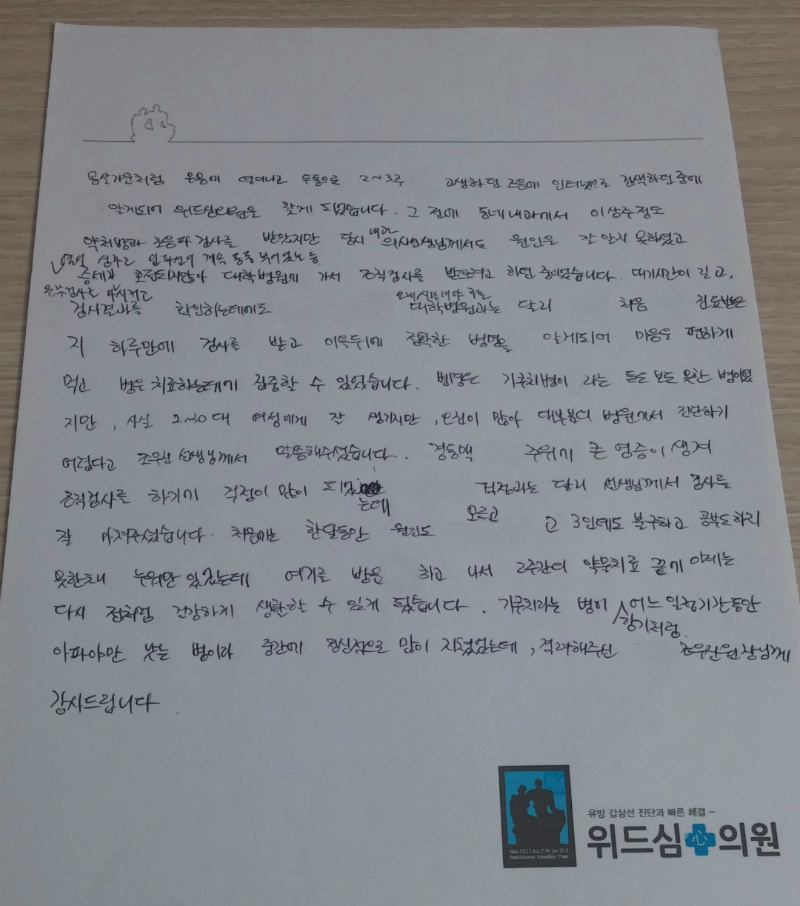 몸살기운처럼 온몸에 열이나고 두통으로 2~3주 고생하던 즈음에 인터넷으로 검색하던 중에
알게되어 위드심의원을 찾게 되었습니다. 그 전에 동네내과에서 이상주정도
약처방과 초음파검사를 받았지만 당시 내과 의사선생님께서도 원인을 잘 알지 못하셨고
계속 퉁퉁 부어있는 등
증세가 호전되지않아 대학병원에 가서 조직검사를 받으려고 하던 중이었습니다. 대기시간이 길고,
검사결과를 확인하는데에도 대학병원과는 달리 처음
지 하루만에 검사를 받고 이틀뒤에 정확한 병명을 알게되어 마음을 편하게
먹고 병을 치료하는데에 집중할 수 있었습니다. 병명은 기쿠치병이 라는 듣도 보도 못한 병이었
지만, 사실 2~30대 여성에게 잘 생기지만, 오진이 많아 대부분의 병원에서 진단하기
어렵다고 선생님께서 말씀해주셨습니다. 경동맥 주위에 큰 염증이 생겨
조직검사를 하기에 걱정이 많이 되었는데 걱정과는 달리 선생님께서 검사를
잘 마쳐주셨습니다. 처음에는 한달동안 원인도 모르고 고3인데도 불구하고 공부도하지
못한채 누워만 있었는데 여기를 받은 하고 나서 2주간의 약물치료 끝에 이제는
다시 전처럼 건강하게 생활할 수 있게 됐습니다. 기쿠치라는 병이 감기처럼 어느 일정기간동안
아파야만 낫는 병이라 중간에 정신적으로 많이 지쳤었는데, 격려해주신 원장님께
감사드립니다.
유방 갑상선 진단과 빠른 해결 –
위드심 心 의원